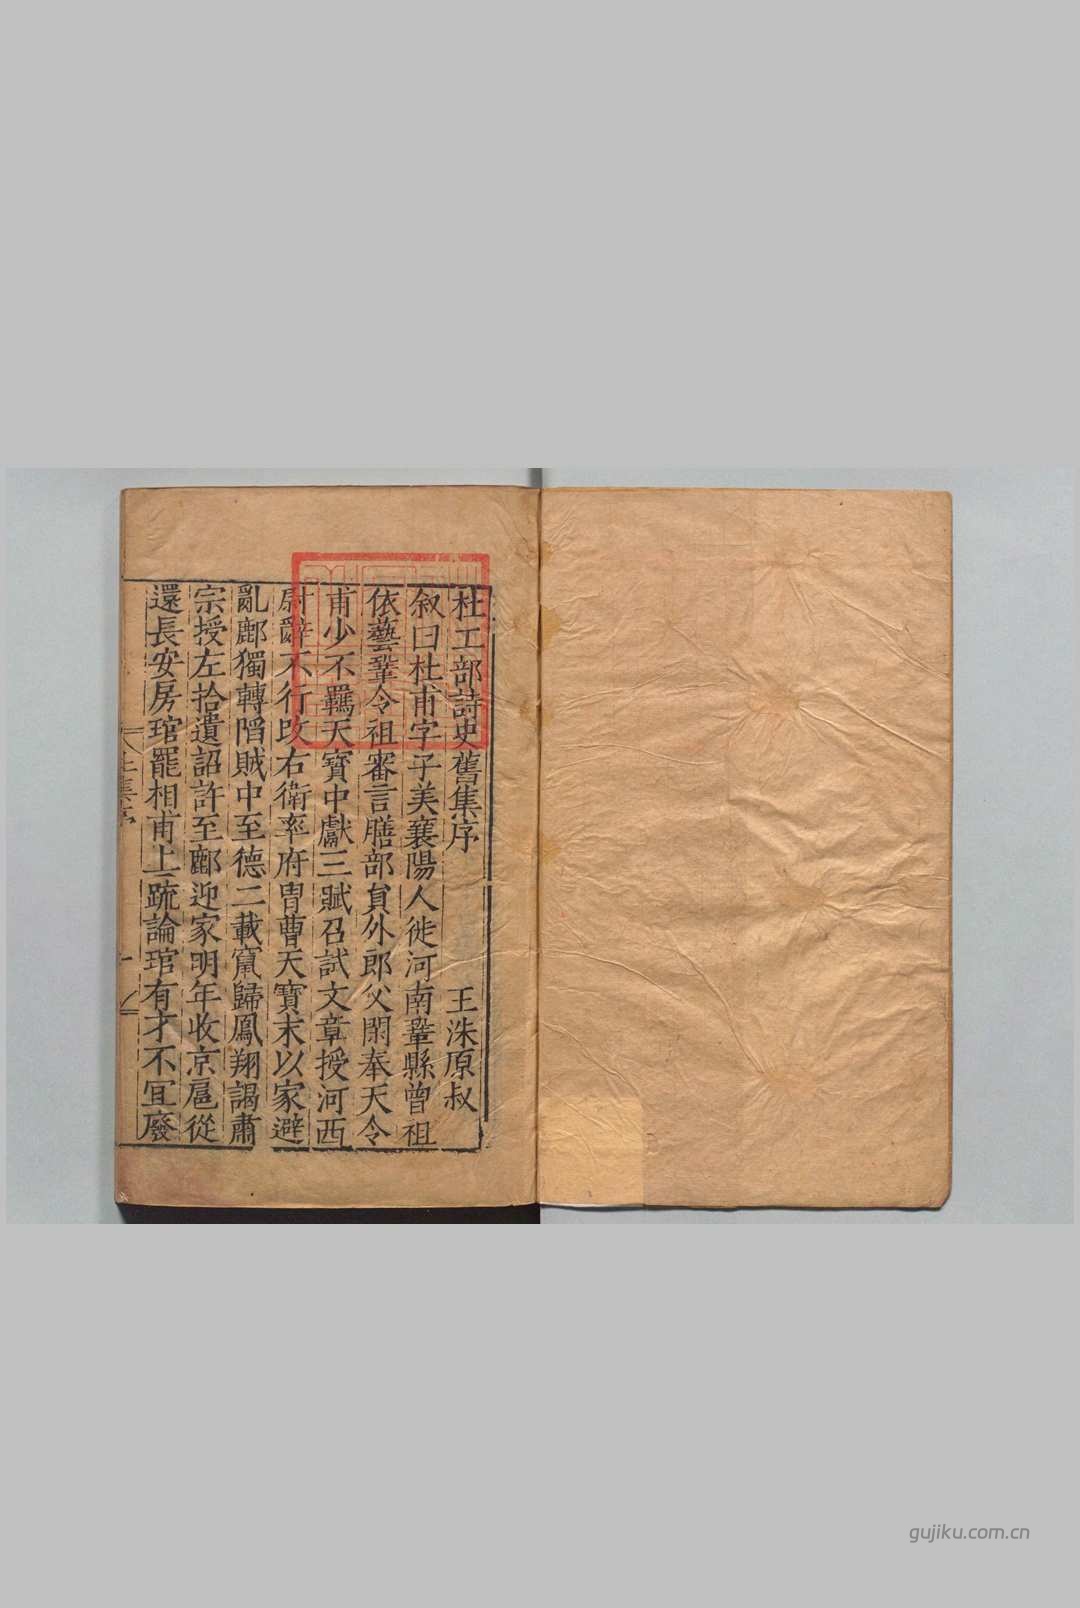 杜工部詩史舊集序
王洙原叔
叙曰杜甫字子美襄陽人徙河南鞏縣曾祖
依藝鞏令祖審言膳部貟外郎父閑奉天令
甫少不羈天寳中獻三賦召試文章授河西
尉辭不行改右衛率府胄曹天寳末以家避
亂鄜獨轉陷賊中至德二載竄歸鳳翔謁肅
宗授左拾遺詔許至鄜迎家明年收京扈從
還長安房琯罷相甫上疏論琯有才不冝廢
杜集序
一
gujiku.com.cn